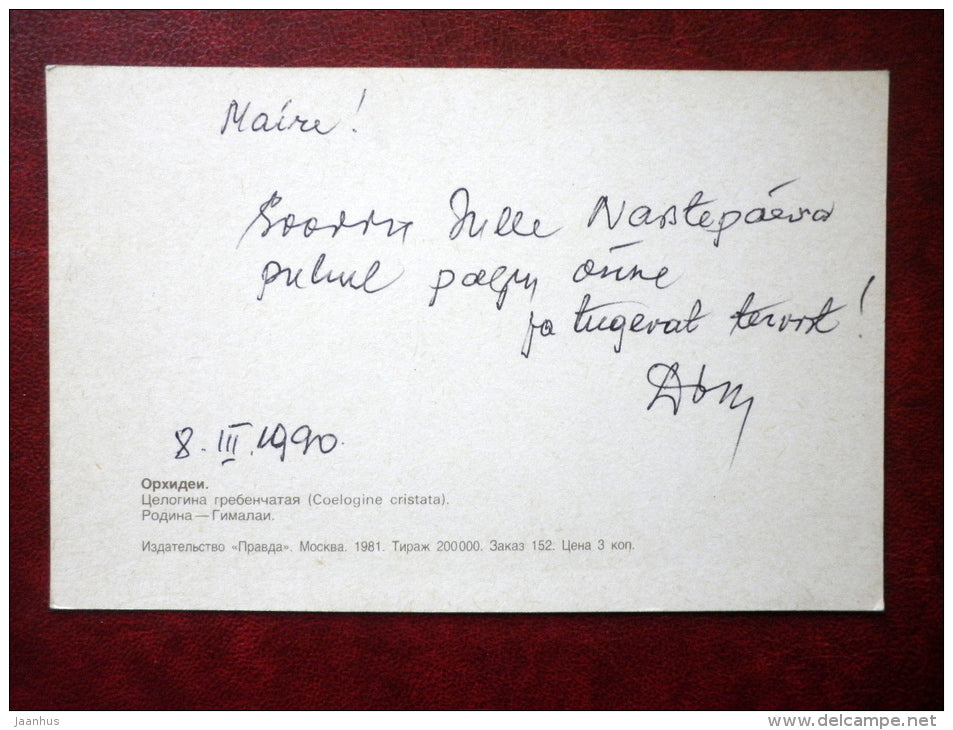 Maire!
Soovin Sulle Naistepäeva
puhul palju õnne
ja tugevat tervist!
8. III. 1990.
Орхидеи.
Целогина гребенчатая (Coelogine cristata).
Родина — Гималаи.
Издательство «Правда». Москва. 1981. Тираж 200000. Заказ 152. Цена 3 коп.
jaanhus
www.delcampe.net